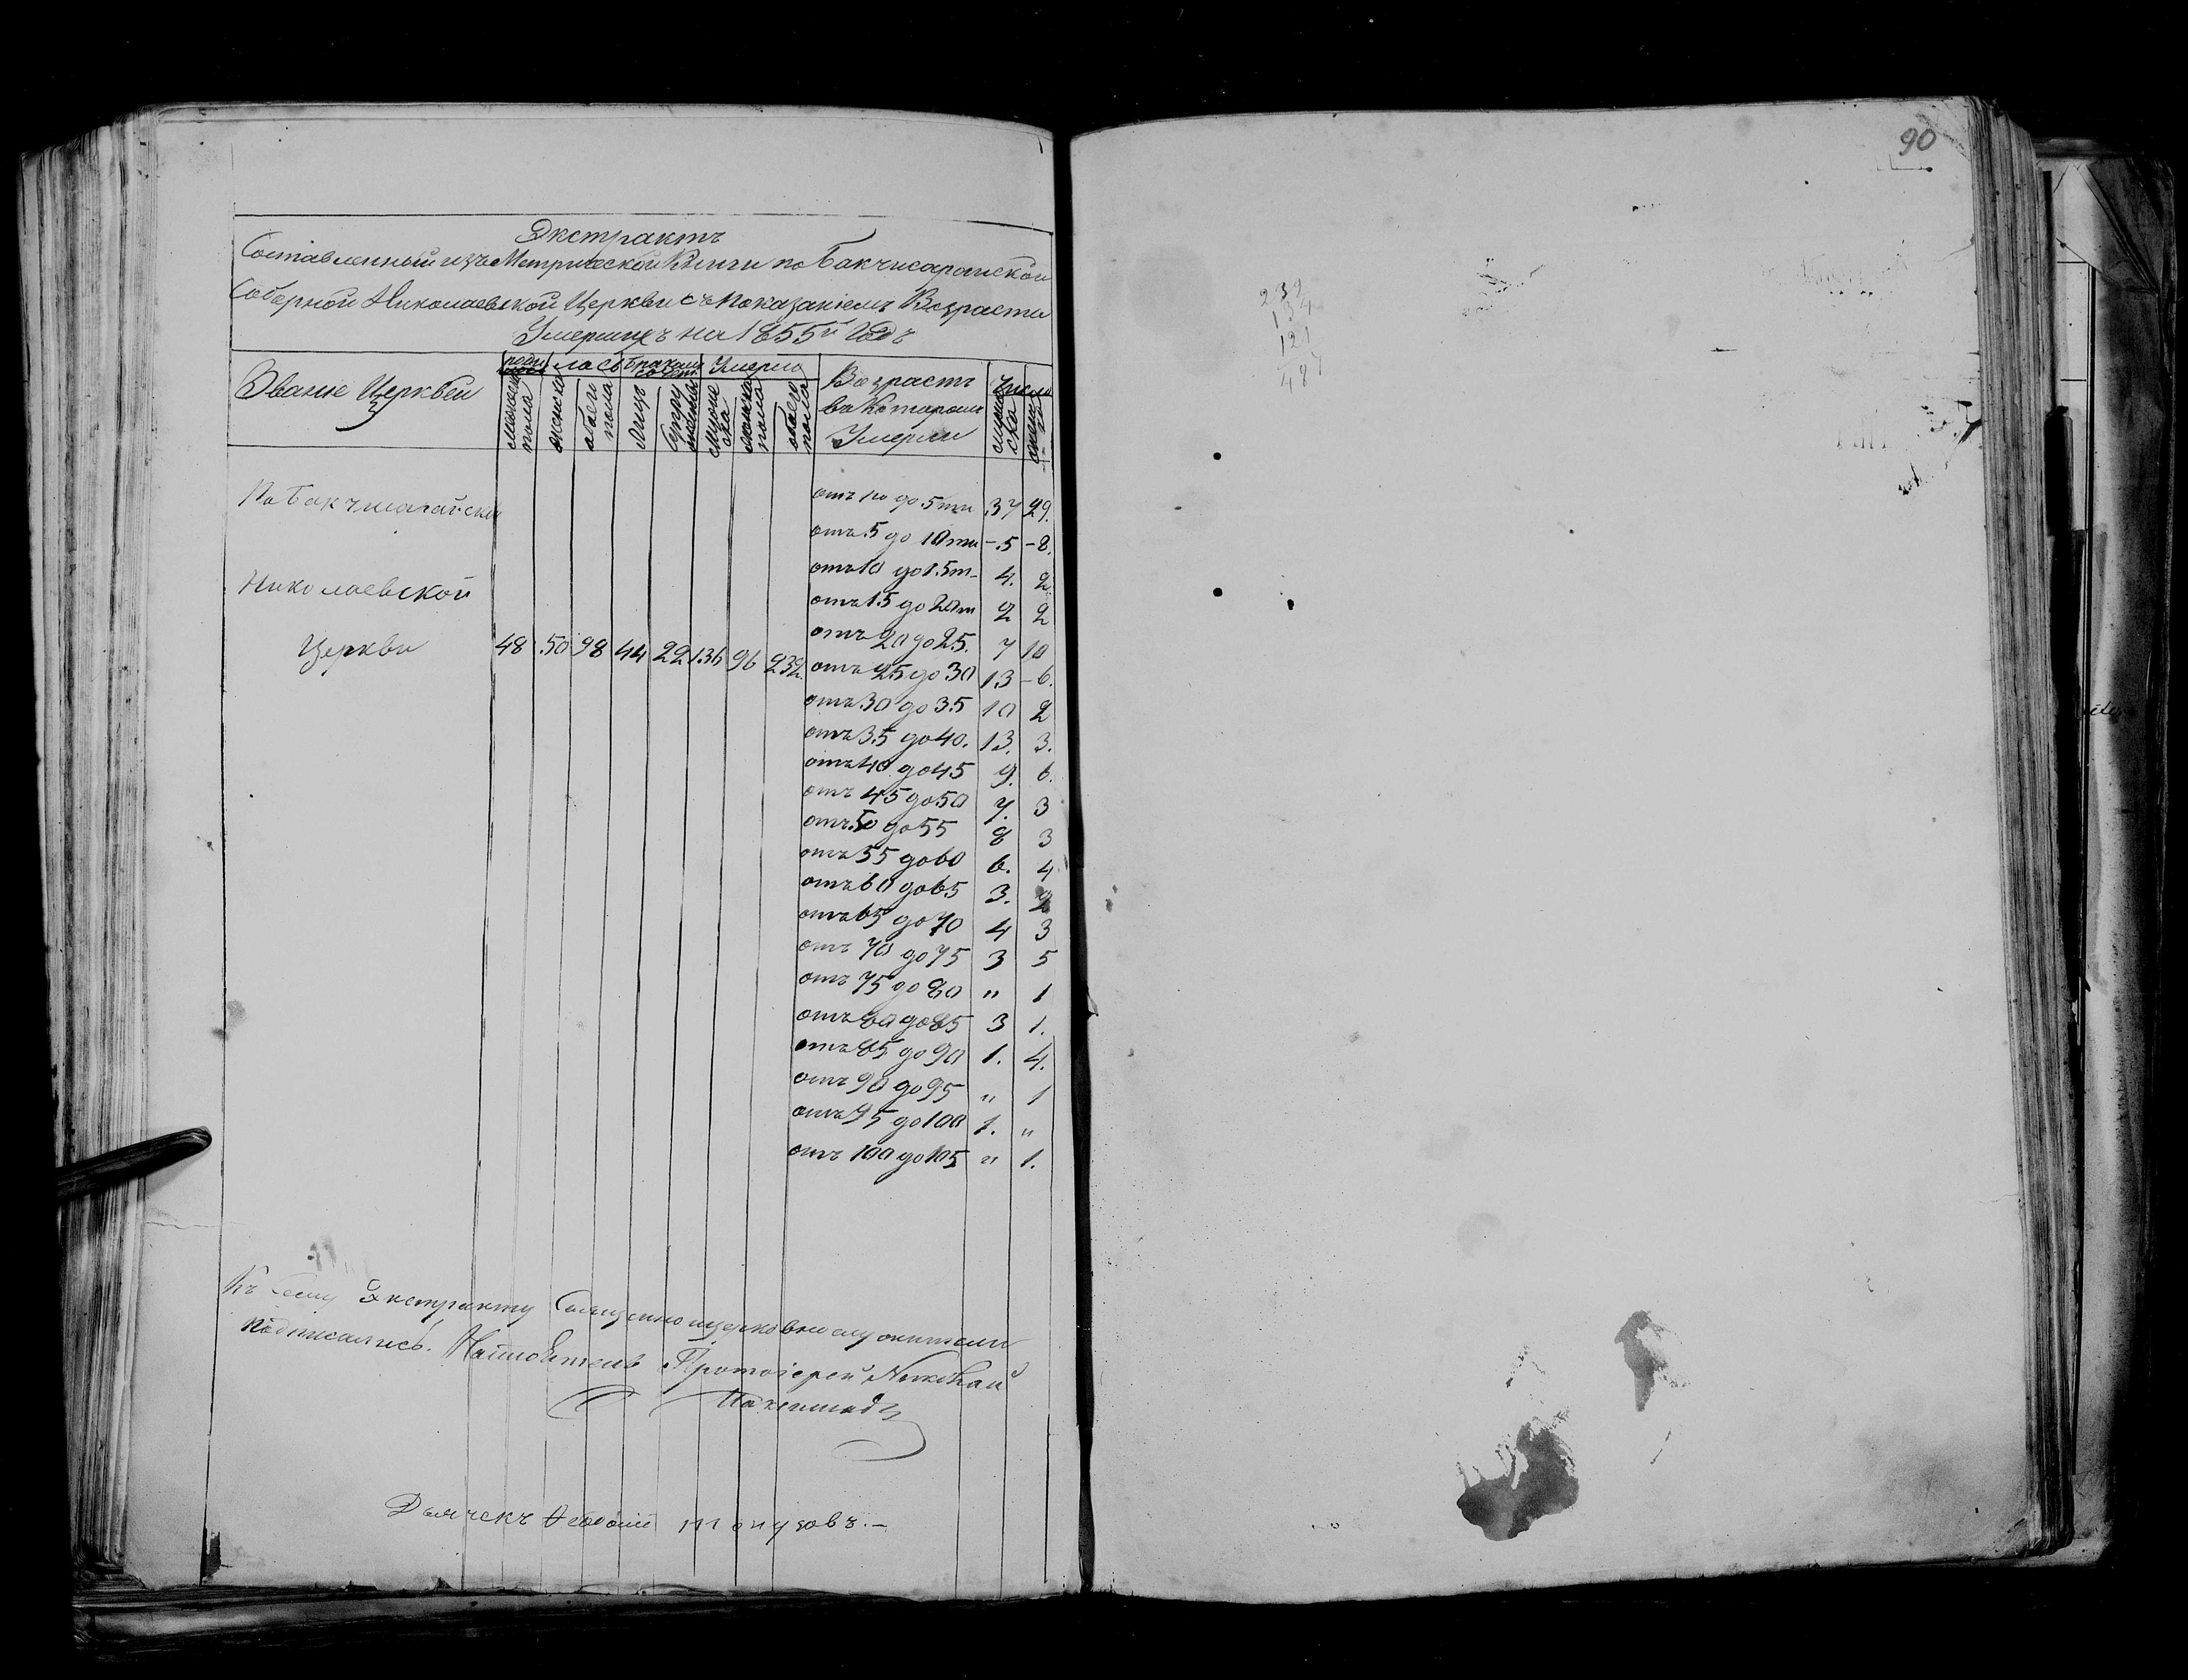 Экстрактъ
Составленный изъ Метрической Книги по Бакчисарайской
Соборной Николаевской Церкви съ показаніемъ Возраста
Умершихъ на 1855й Годъ
Званіе Церквей
роди лось
Умерло
Возрастъ
въ которомъ
Умерли
Число
мужеска пола
женска
обаего пола
Лицъ
Супру
муже ска
женска пола
обаего пола
По Бакчисарайской
Николаевской
Церкви 48 50 98 44 22 136 96 232
отъ 1го до 5ти 37 29.
отъ 5 до 10ти -5 -8.
отъ 10 до 15т- 4. 2
отъ 15 до 20т 2 2
отъ 20 до 25. 7 10
отъ 25 до 30 13 -6.
отъ 30 до 35 10 2
отъ 35 до 40. 13. 3.
отъ 40 до 45 9. 6.
отъ 45 до 50 7. 3
отъ 50 до 55 8 3
отъ 55 до 60 6. 4
отъ 60 до 65 3. 2
отъ 65 до 70 4 3
отъ 70 до 75 3 5
отъ 75 до 80 " 1
отъ 80 до 85 3 1.
отъ 85 до 90 1. 4.
отъ 90 до 95 " 1
отъ 95 до 100 1. "
отъ 100 до 105 " 1.
Къ сему Экстракту Священноцерковнослужители
подписались. Настоятель Протоіерей Николай
Дьячекъ
90
232
134
121
487